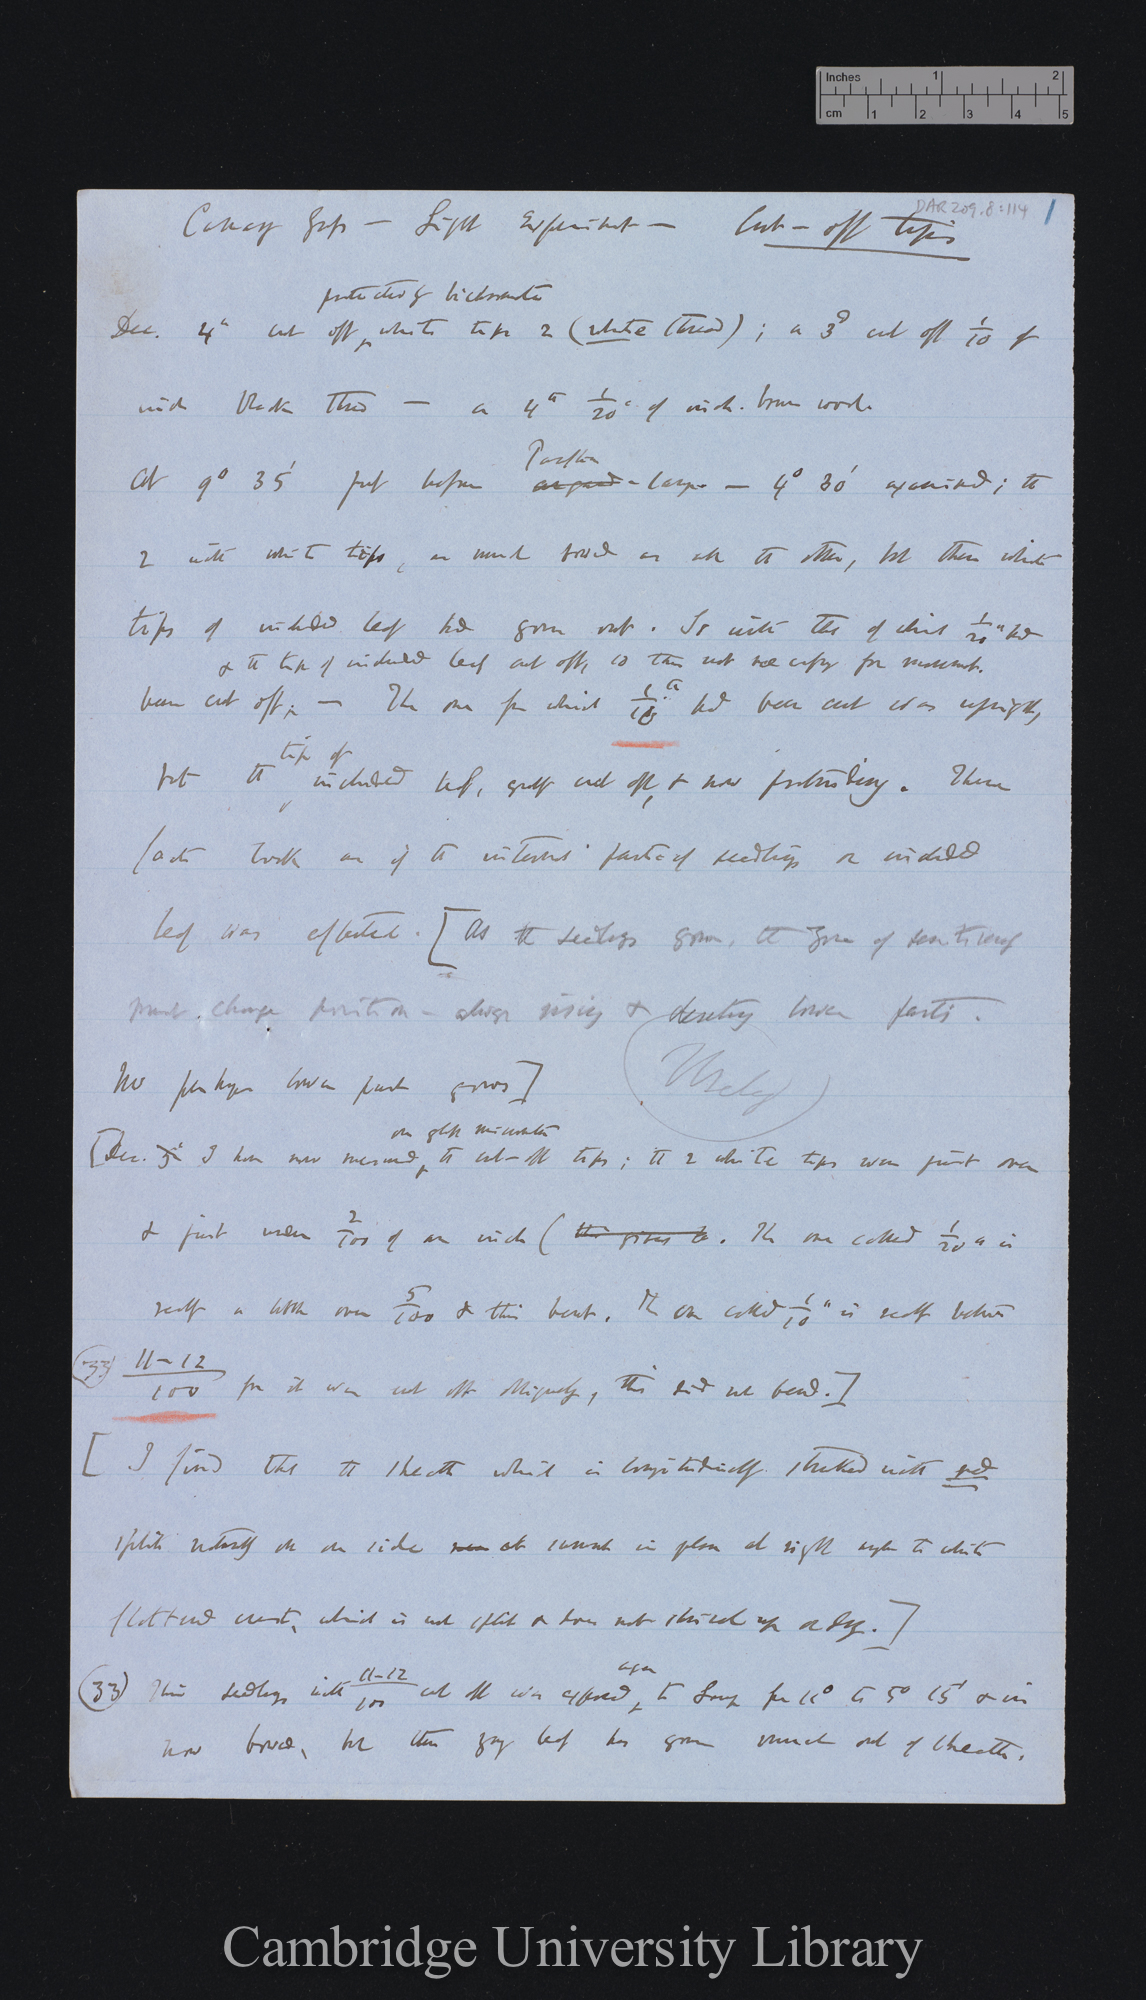 Inches 1 2
cm 1 2 3 4 5
DAR 209.8:114 1
Canary Grass — Light Experiment — Cut-off tips
protected by bichromate
Dec. 4th cut off white tips 2 (white thread); a 3d cut off 1/10 of
inch black thread — a 4th 1/20th of inch. brown
At 9° 35' put before lamp — 4° 30' examined; the
2 with white tips, as much bowed as all the other, but then white
tips of included leaf had grown out. So with the of which 1/20th had
& the tip of included leaf cut off, so then not necessary for movement.
been cut off; — The one from which 1/10th had been cut was upright,
tip of
but the included leaf, cut off, & now protruding. These
facts look as if the internal part of seedlings or included
leaf was affected. [As the seedlings grow, the zone of sensitiveness
must change position — always rising & deserting lower parts.
No perhaps lower part grows]
on glass micrometer
[Dec. 5th I have now measured the cut-off tips; the 2 white tips were just over
& just under 2/100 of an inch (. The one called 1/20th is
really a little over 5/100 & this bent. The one called 1/10th is really between
(33) 11–12/100 for it was cut off obliquely, this did not bend.]
[I find that the sheath which is longitudinally streaked with red
splits on one side at summit in plane at right angles to white
flattened crest, which is not split]
again
(33) This seedlings with 11–12/100 cut off was exposed to lamp for 11° to 5° 15' & is
now bowed, but then leaf has grown much out of sheath.
Cambridge University Library